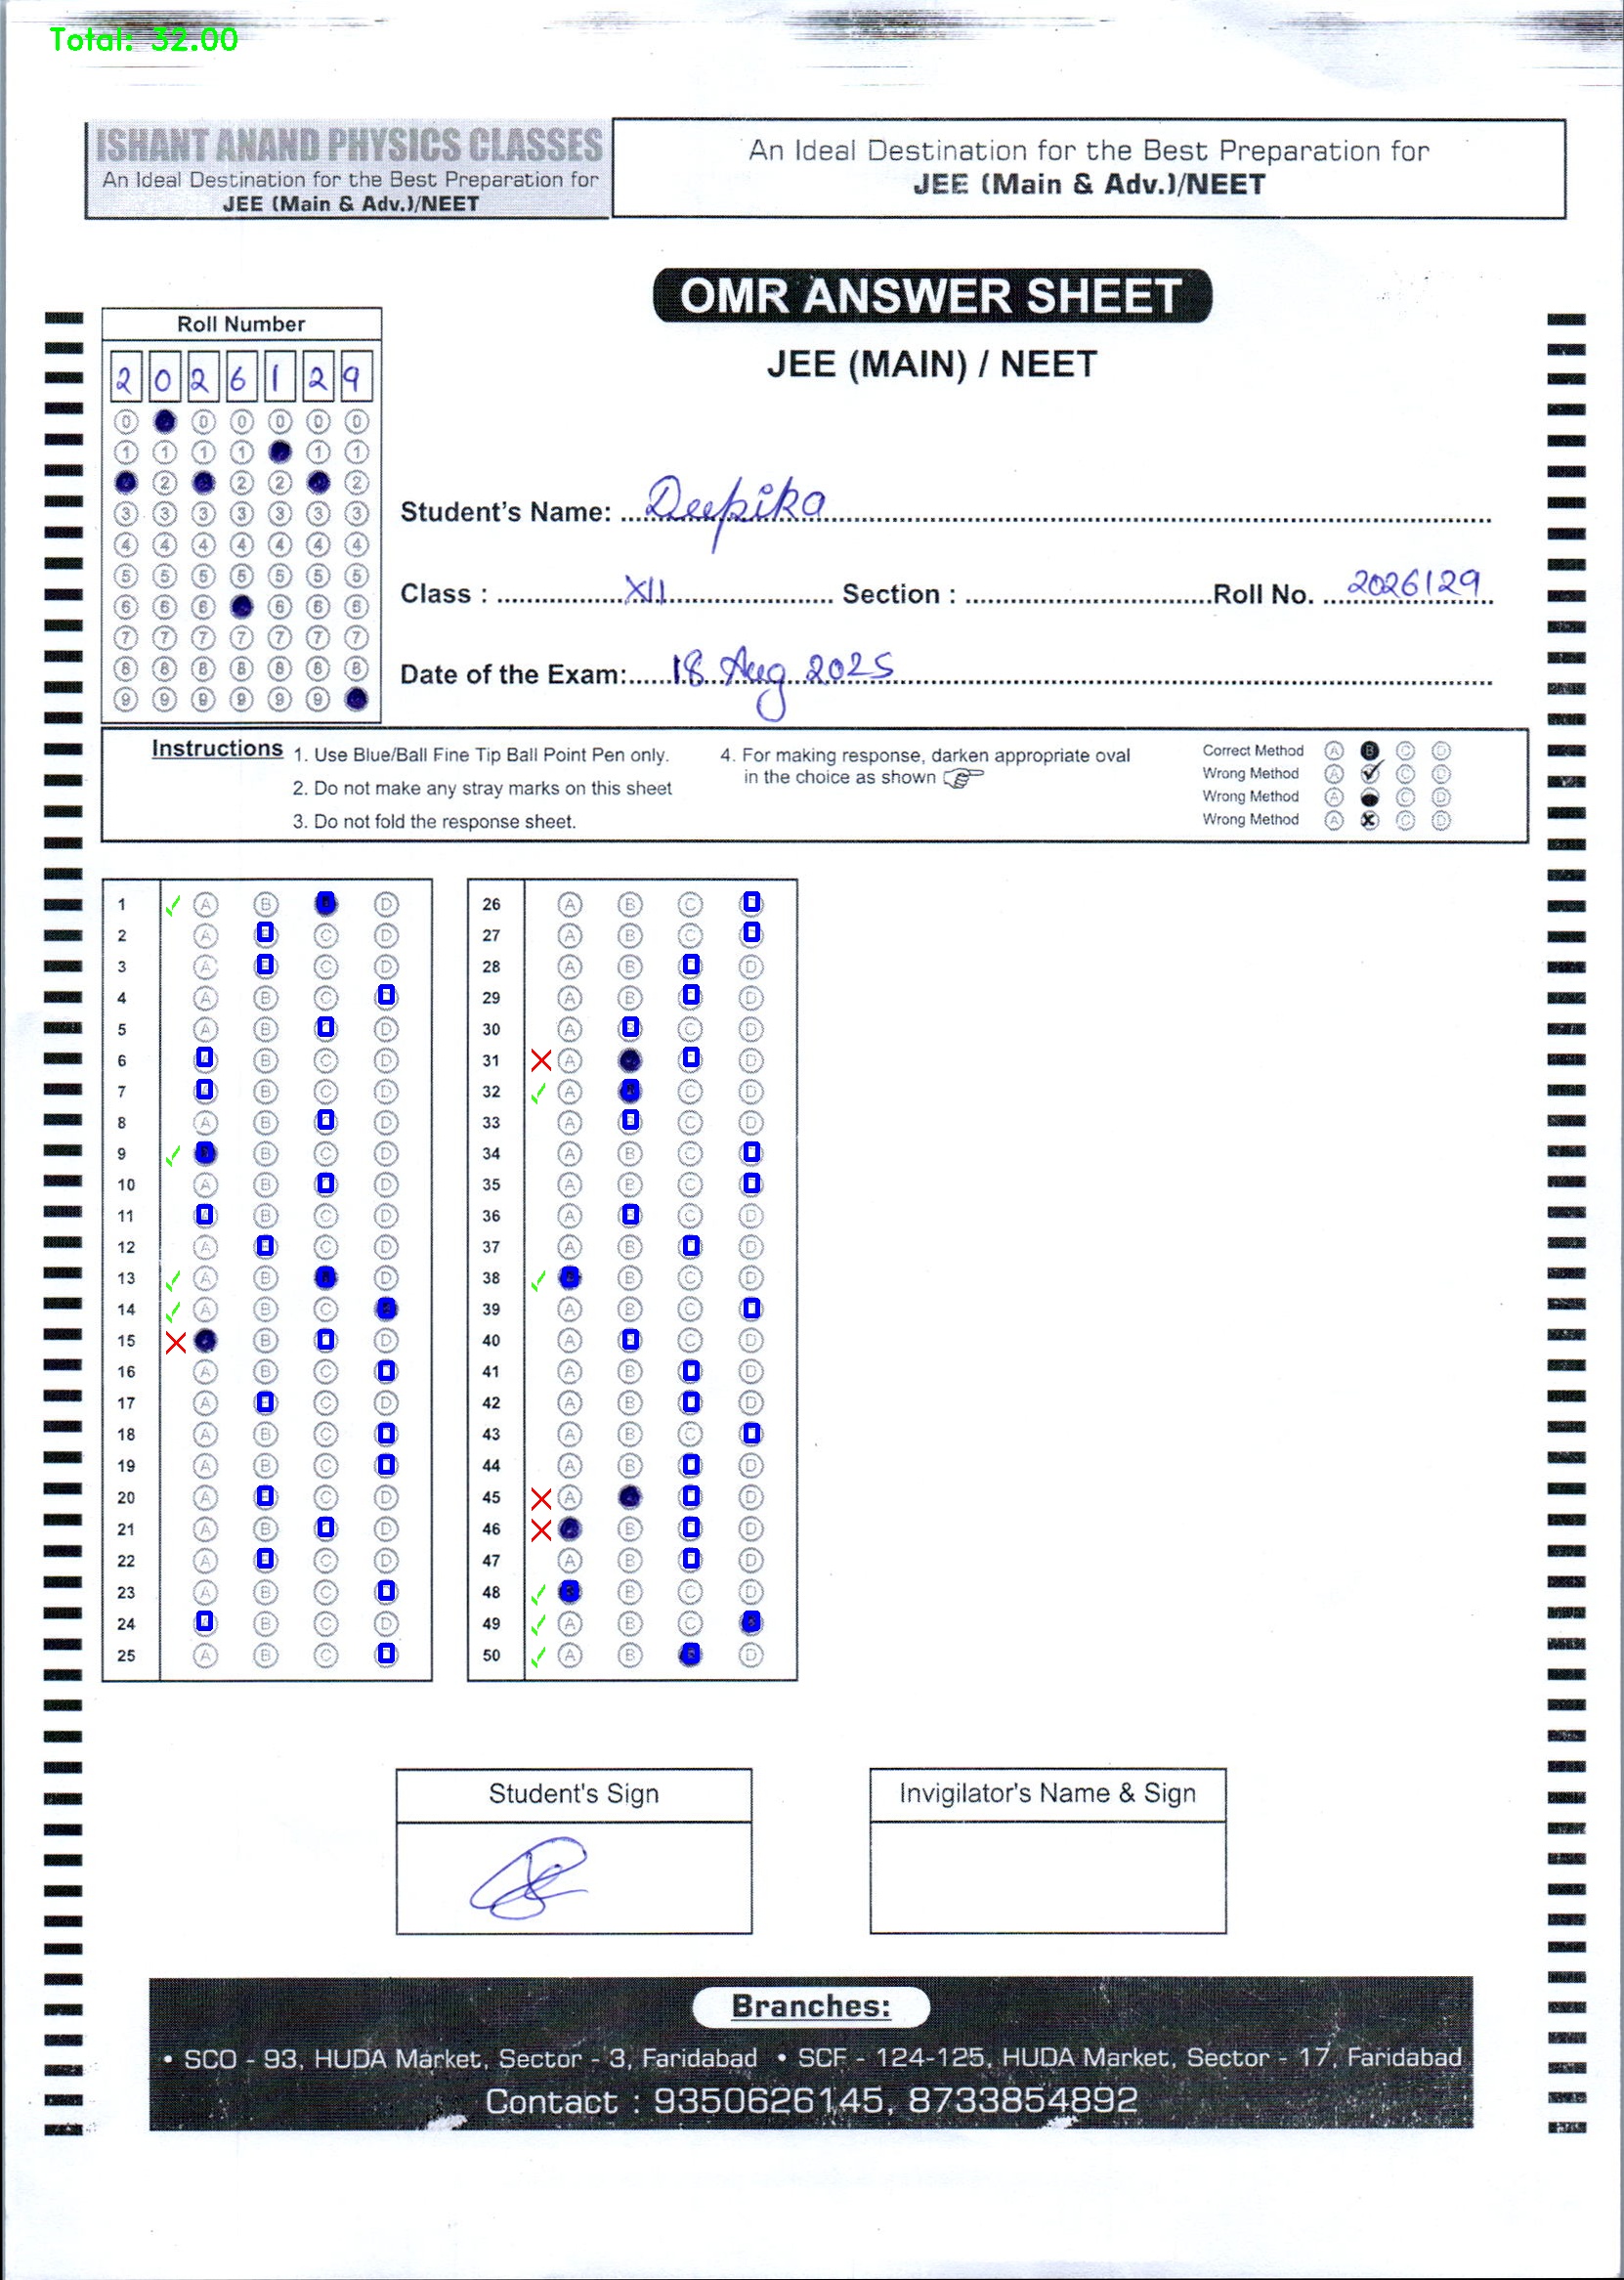 Total: 32.00
ISHANT ANAND PHYSICS CLASSES
An Ideal Destination for the Best Preparation for
JEE (Main & Adv.)/NEET
An Ideal Destination for the Best Preparation for
JEE (Main & Adv.)/NEET
OMR ANSWER SHEET
JEE (MAIN) / NEET
Roll Number
2 0 2 6 1 2 9
0 0 0 0 0 0
1 1 1 1 1 1
2 2 2 2
3 3 3 3 3 3 3
4 4 4 4 4 4 4
5 5 5 5 5 5 5
6 6 6 6 6 6
7 7 7 7 7 7 7
8 8 8 8 8 8 8
9 9 9 9 9 9
Student's Name: Deepika
Class : XII Section : Roll No. 2026129
Date of the Exam: 18 Aug 2025
Instructions
1. Use Blue/Ball Fine Tip Ball Point Pen only.
2. Do not make any stray marks on this sheet
3. Do not fold the response sheet.
4. For making response, darken appropriate oval
in the choice as shown
Correct Method A B C D
Wrong Method A C D
Wrong Method A C D
Wrong Method A C D
1 A B D
2 A C D
3 A C D
4 A B C
5 A B D
6 B C D
7 B C D
8 A B D
9 B C D
10 A B D
11 B C D
12 A C D
13 A B D
14 A B C
15 B D
16 A B C
17 A C D
18 A B C
19 A B C
20 A C D
21 A B D
22 A C D
23 A B C
24 B C D
25 A B C
26 A B C
27 A B C
28 A B D
29 A B D
30 A C D
31 A D
32 A C D
33 A C D
34 A B C
35 A B C
36 A C D
37 A B D
38 B C D
39 A B C
40 A C D
41 A B D
42 A B D
43 A B C
44 A B D
45 A D
46 B D
47 A B D
48 B C D
49 A B C
50 A B D
Student's Sign
Invigilator's Name & Sign
Branches:
• SCO - 93, HUDA Market, Sector - 3, Faridabad • SCF - 124-125, HUDA Market, Sector - 17, Faridabad
Contact : 9350626145, 8733854892